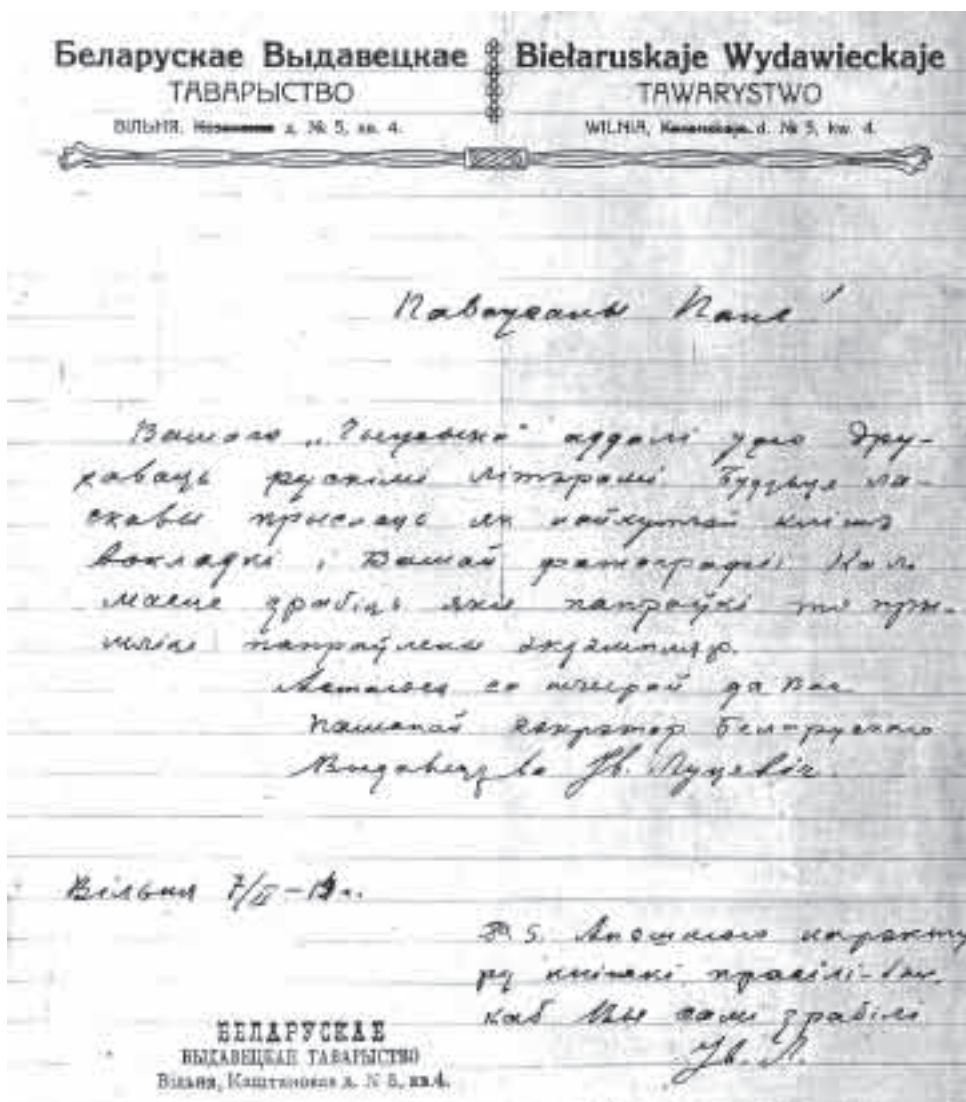 Беларускае Выдавецкае
ТАВАРЫСТВО
ВІЛЬНЯ, д. № 5, кв. 4.
Biełaruskaje Wydawieckaje
TAWARYSTWO
WILNIA, d. № 5, kw. 4.
Паважаны Пане!
Вашаго аддалі ўжо дру-
каваць рускімі літэрамі. Будзьце ла-
скавы прыслаць як найхутчэй клішэ
вокладкі і Вашай фатографіі. Калі
маеце зрабіць якія папраўкі то пры-
шліце папраўлены экзэмпляр.
Астаюся со шчырай да Вас
пашанай Беларускаго
Ів. Луцевіч.
Вільня 7/II – г.
P.S. карэкту-
ру кніжкі прасілі-бы,
каб Вы самі зрабілі
Ів. Л.
БЕЛАРУСКАЕ
ВЫДАВЕЦКАЕ ТАВАРЫСТВО
Вільня, Каштановая д. № 5, кв. 4.